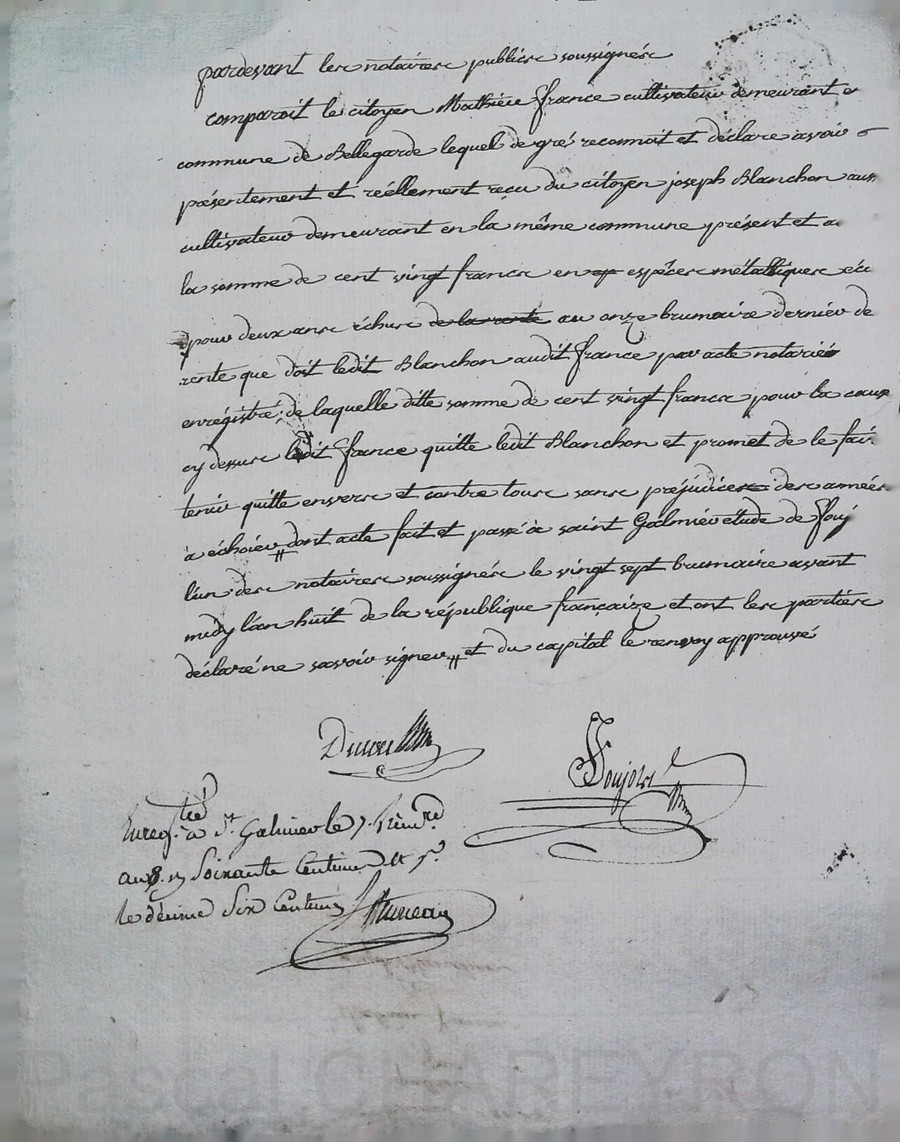 pardevant les notaires publics soussignés
comparoit le citoyen Mathieu france cultivateur demeurant e
commune de Bellegarde lequel de gré reconnoit et déclare avoir
présentement et réellement reçu du citoyen joseph Blanchon aus
cultivateur demeurant en la même commune présent et a
la somme de cent vingt francs en espéces métalliques
pour deux ans échus de la rente au onze brumaire dernier de
rente que doit ledit Blanchon audit france par acte notarié
enrégistré; de laquelle ditte somme de cent vingt francs pour la cause
cy dessus ledit france quitte ledit Blanchon et promet de le fai
tenir quitte envers et contre tous sans préjudice des années
à échoir # dont acte fait et passé à saint Galmier étude de
l'un des notaires soussignés le vingt sept brumaire avant
midy l'an huit de la république françaize et ont les parties
déclaré ne savoir signer # et du capital le renvoy approuvé
Enregtré à St Galmier le 7. frimre
an 8. Soixante Centimes
le décime Six Centimes
Pascal CHAREYRON